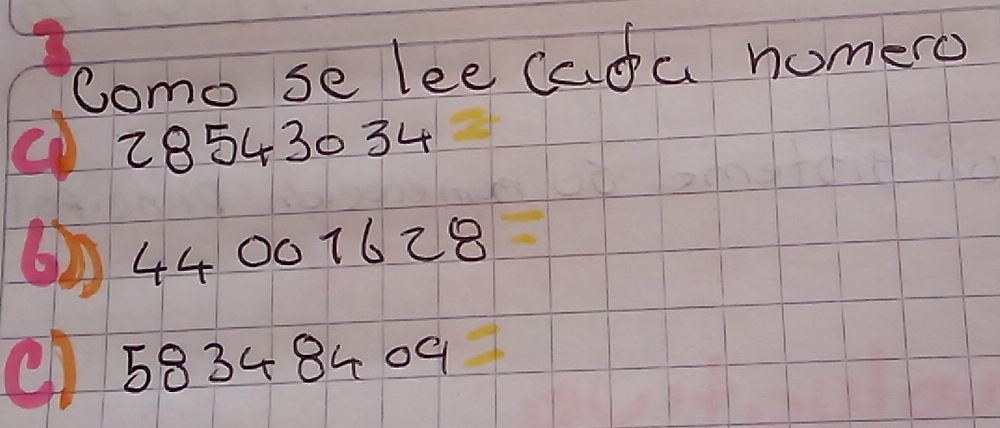 3
Como se lee cada nomero
a) 28543034 =
b) 44001628 =
c) 58348409 =